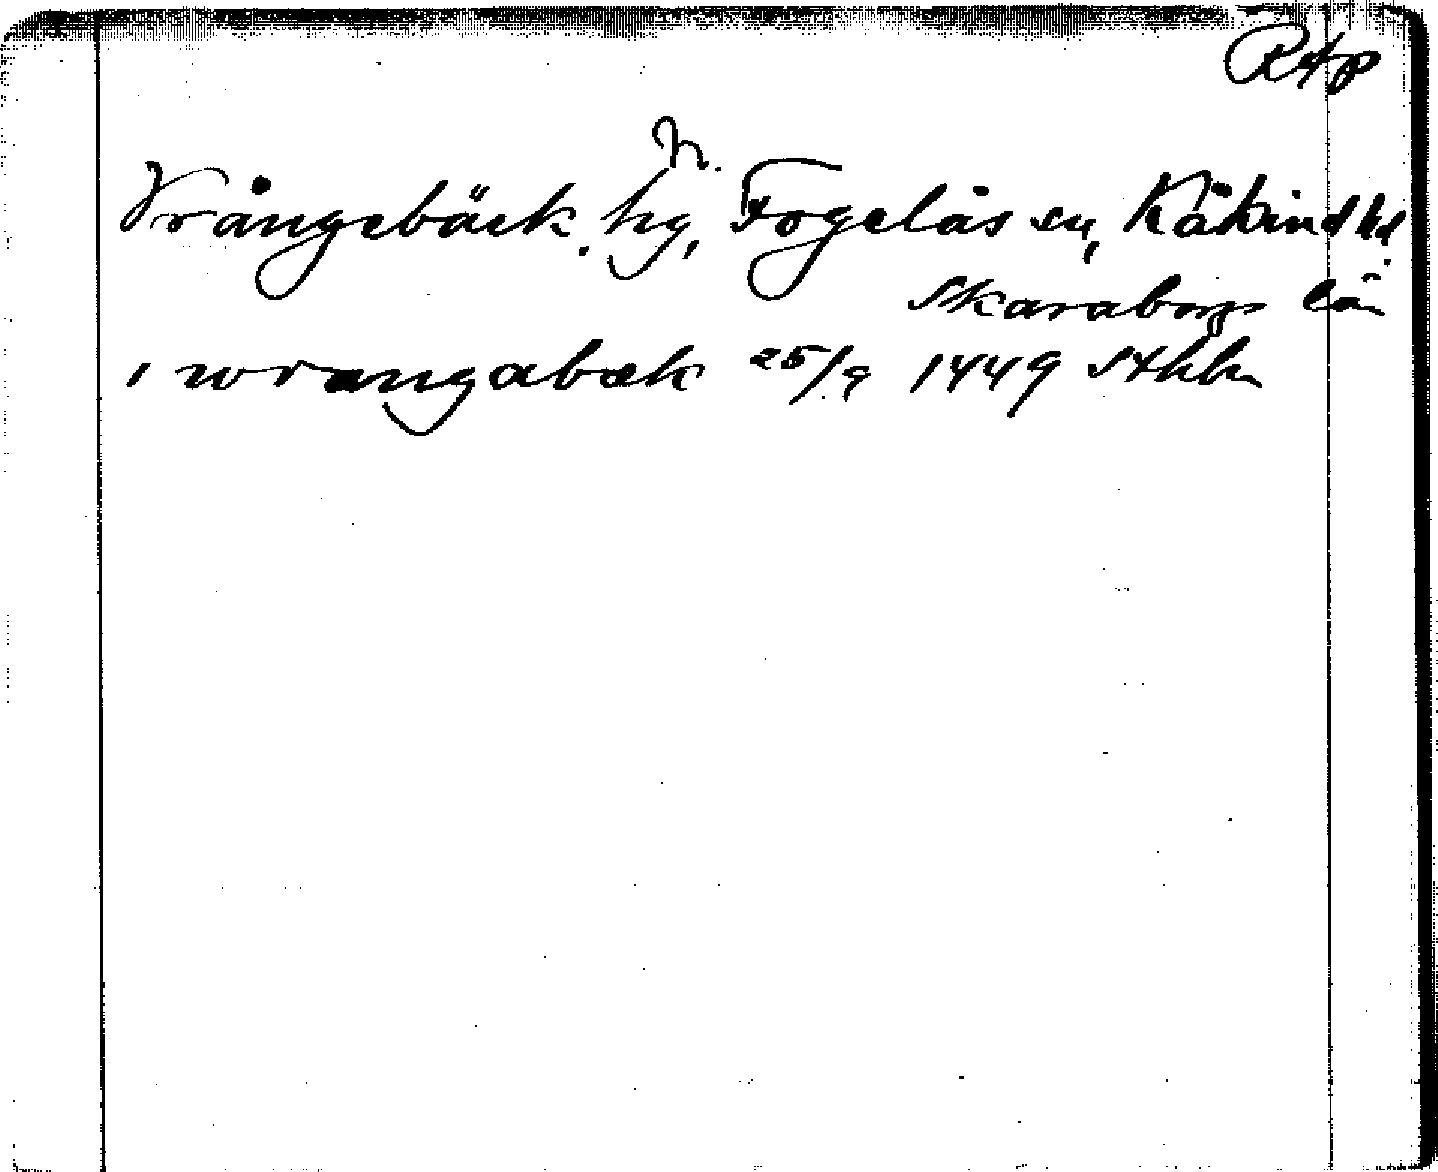 Rap
N.
Vrångebäck. hg, Fogelås sn, Kåkind hd
Skaraborgs län
i wrangabæk 25/9 1449 Sthlm